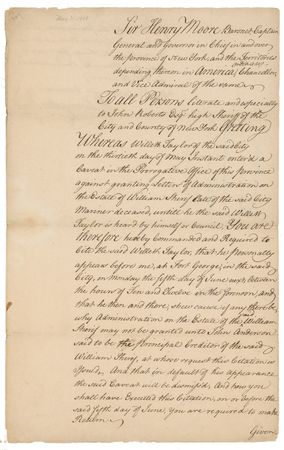 Sir Henry Moore Baronet Captain
General and Governor in Chief in and over
the province of New York, and the Territories
depending thereon in America, Chancellor
and Vice Admiral of the same.
To all Persons Literate and especially
to John Roberts Esqr high Sheriff of the
City and County of New York Greeting
Whereas Willett Taylor of the said City
on the thirtieth day of May Instant enter'd a
Caveat in the Prerogative Office of this province
against granting Letters of Administration on
the Estate of William Sherif late of the said City
Mariner deceased, until he the said Willett
Taylor is heard by himself or Council. You are
therefore hereby Commanded and Required to
Cite the said Willett Taylor, that he personally
appear before me, at Fort George, in the said
City, on Monday the fifth day of June next between
the hours of Ten and Twelve in the forenoon, and
that he then and there, shew cause if any there be,
why Administration on the Estate of the said William
Sherif may not be granted unto John Anderson
said to be the principal Creditor of the said
William Sherif, at whose request this Citation is
issued. And that in default of his appearance
the said Caveat will be dismiss'd. And how you
shall have Executed this Citation, on or before the
said fifth day of June, you are required to make
Return.
Given